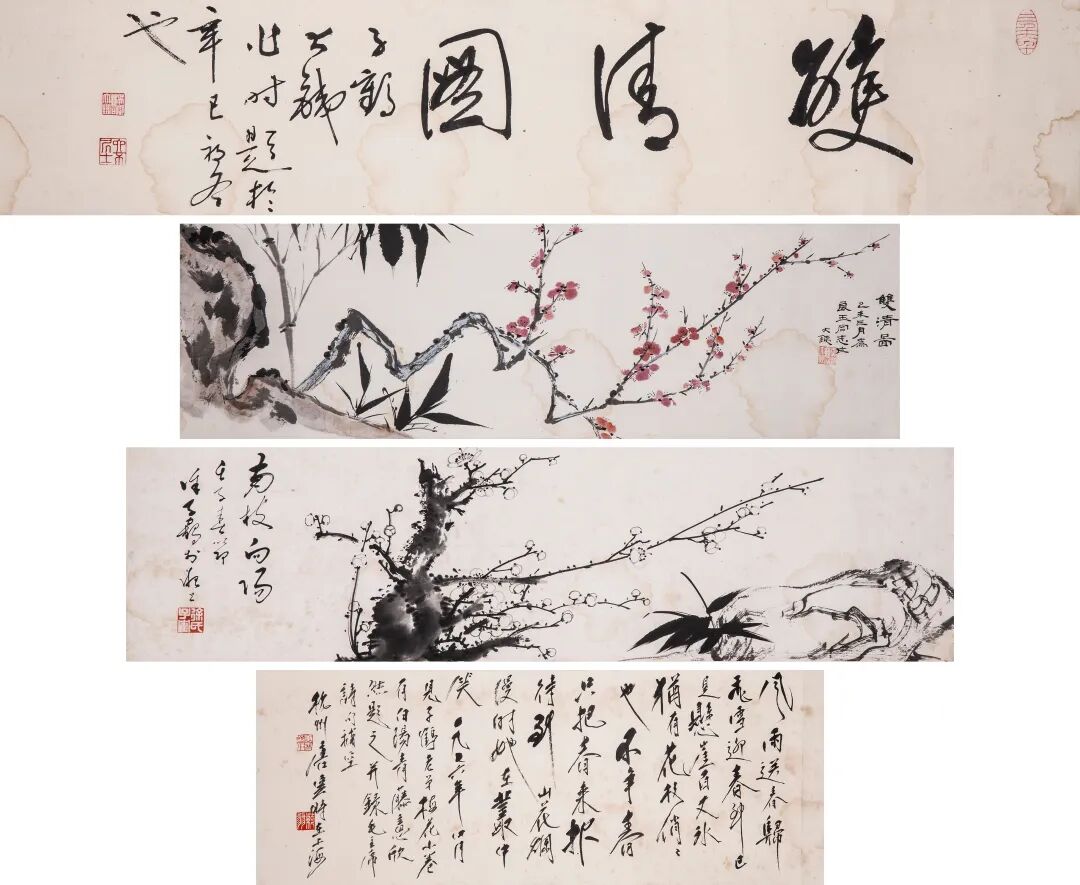 雙清圖
子鶴
大鐵
作時題於
辛巳初冬
也
雙清圖
己未三月為
玉同志
大鐵
南枝向陽
壬子春節
徐子鶴於
徐氏子鶴
風雨送春歸
飛雪迎春到已
是懸崖百丈冰
猶有花枝俏〻
也不爭春
只把春來報
待到山花爛
熳時她在叢中
笑 一九七六年四月
見子鶴老弟梅花小卷
有白陽青藤意欣
然題之并錄毛主席
詩句補空
杭州唐雲時在上海